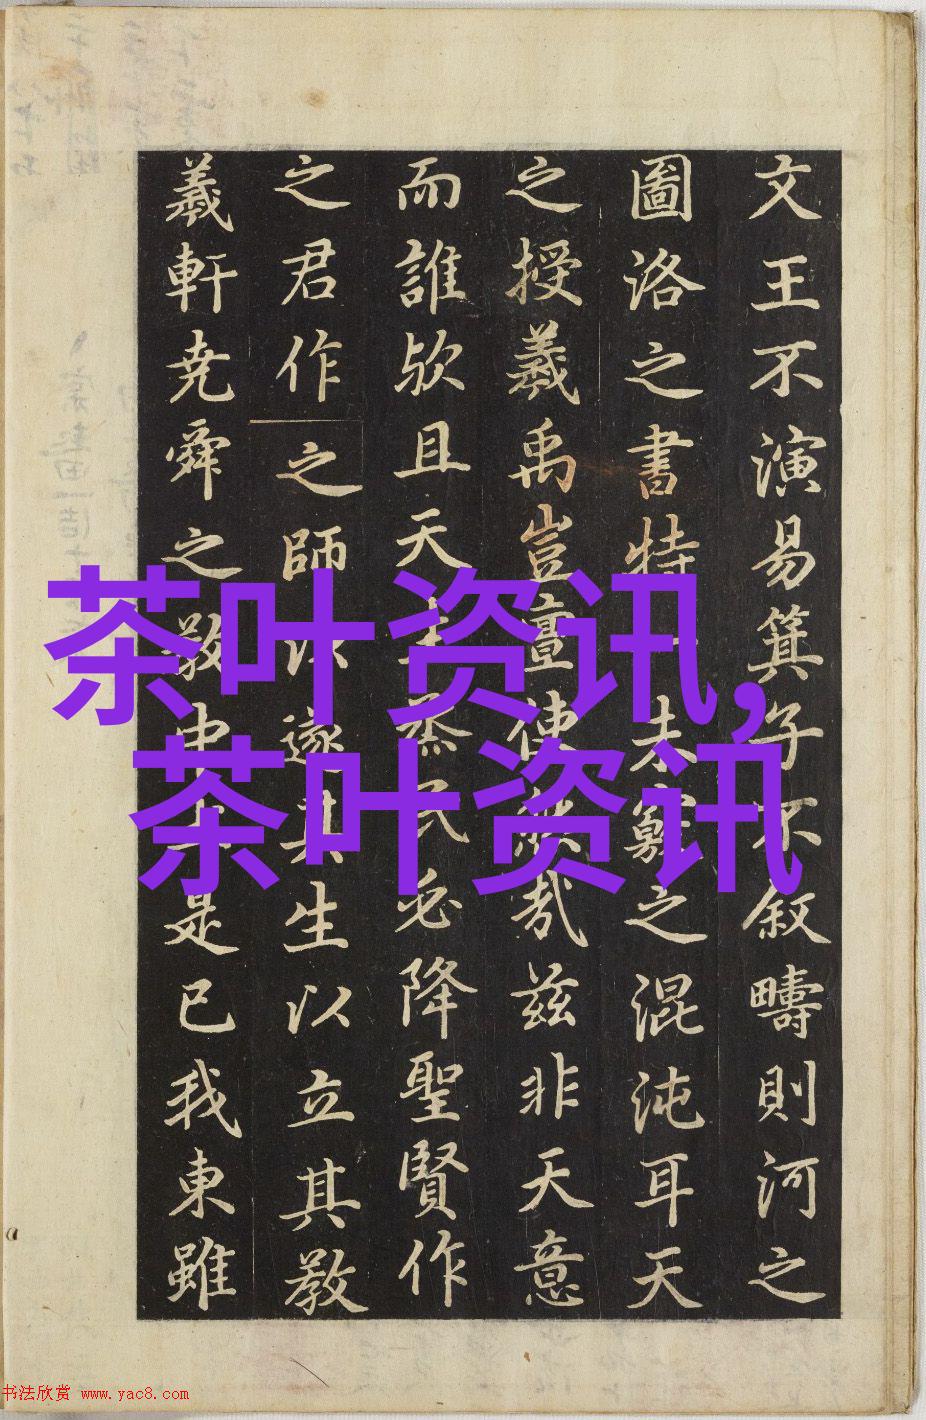 文王不演易箕子不叙疇則河之
圖洛之書特未之混沌耳天
之授羲禹豈亶使哉茲非天意
而誰欤且天烝民必降聖賢作
之君作之師遂其生以立其教
羲軒尭舜之教是已我東雖
茶叶资讯,
茶叶资讯
书法欣赏 www.yac8.com